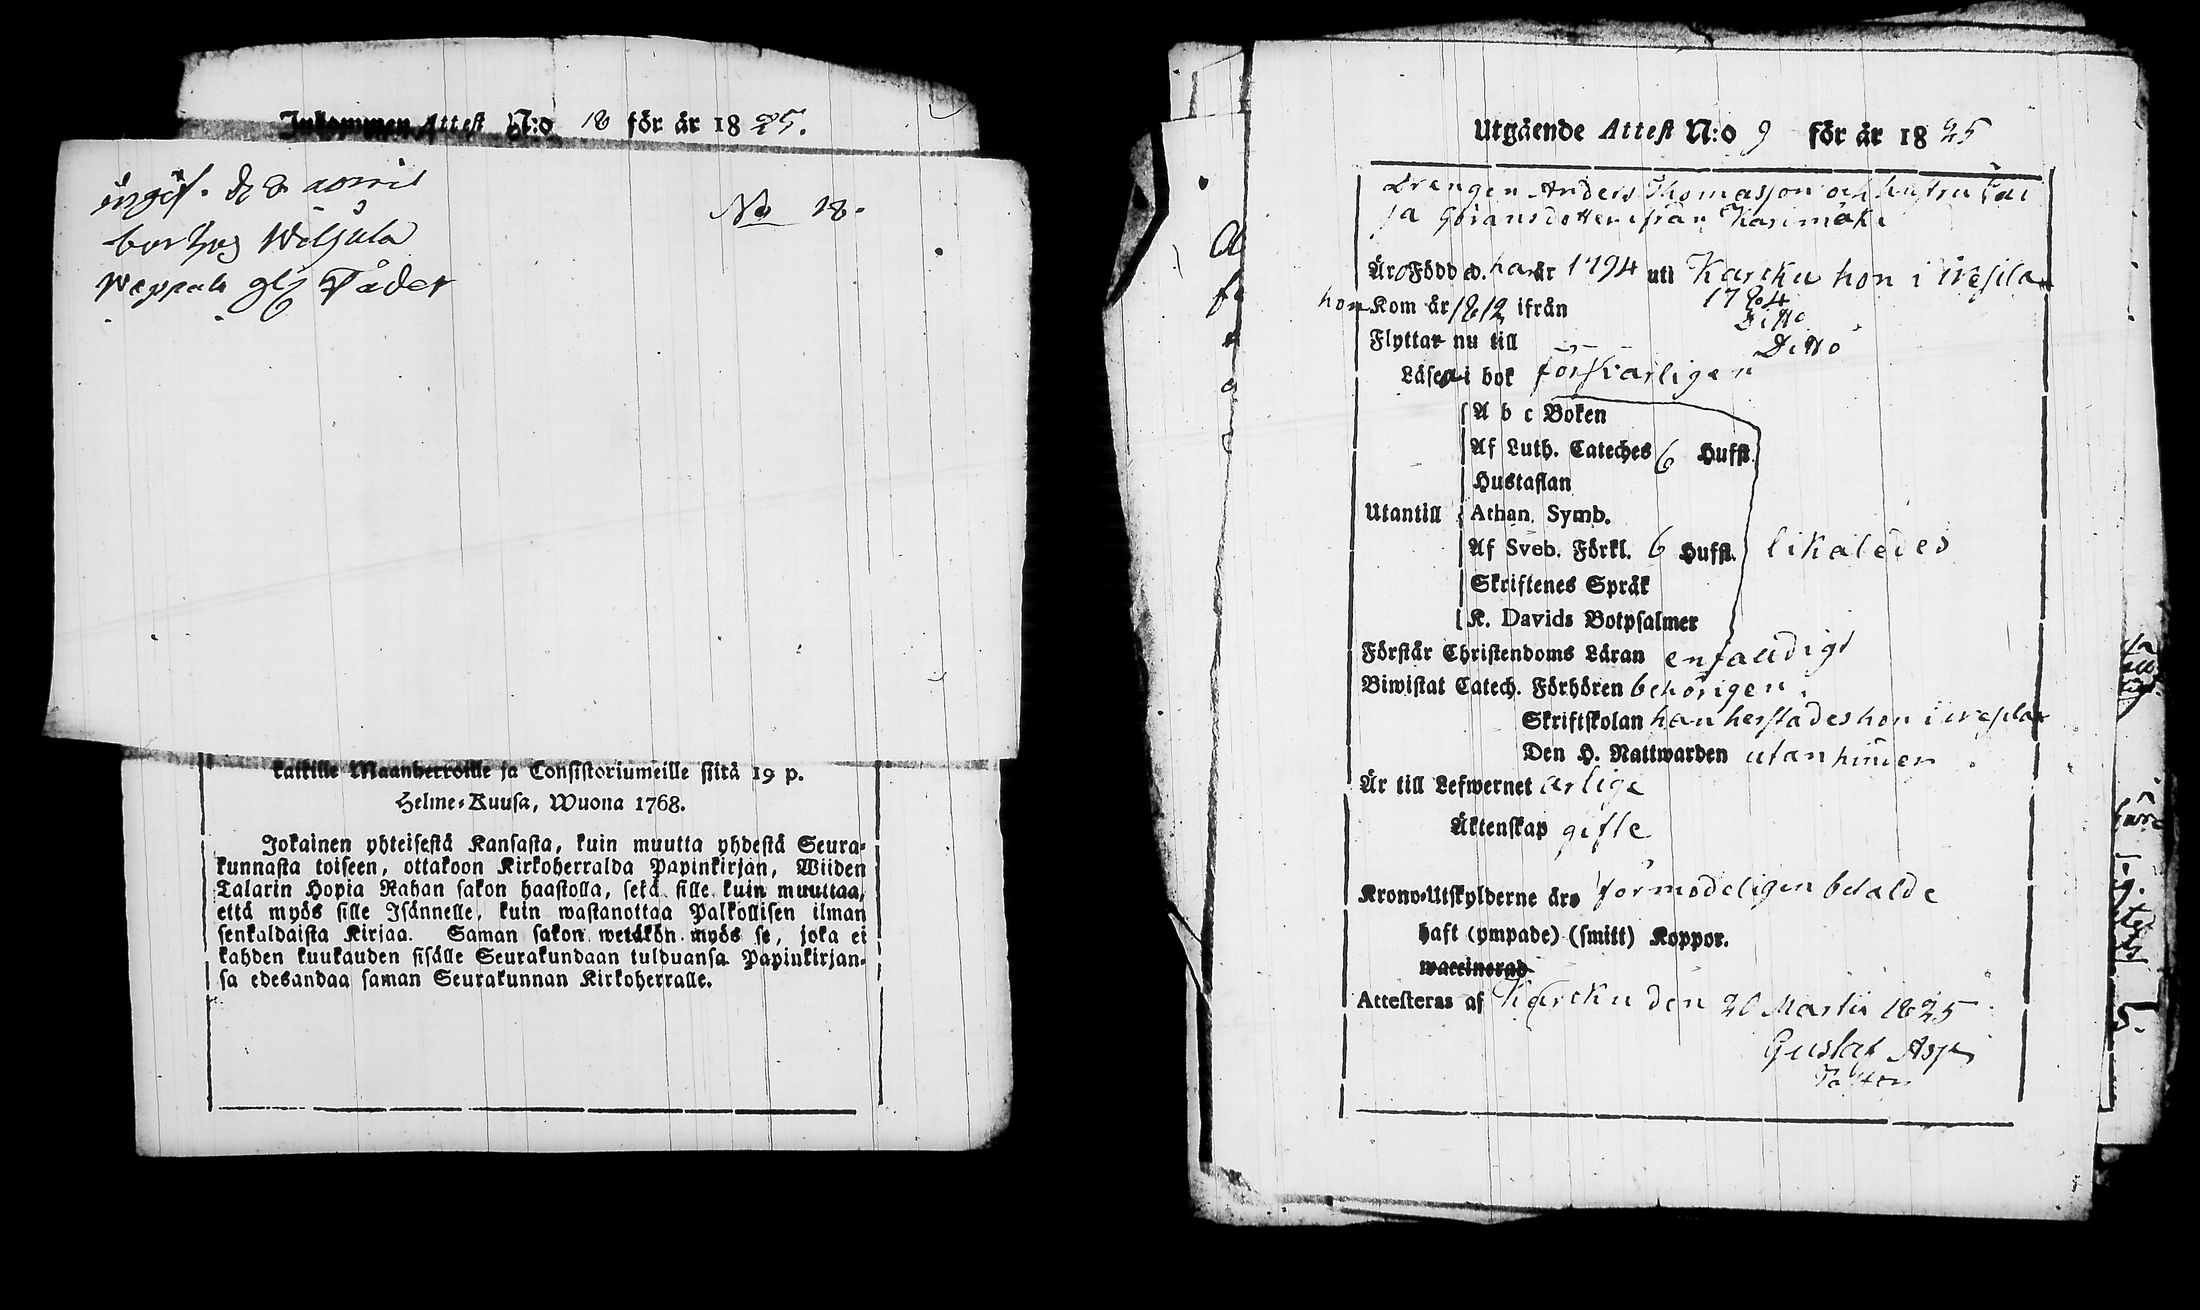 Inkommen Attest N:o 18 för år 1825.
ingif. d 8 april
No 18.
Wiljula
kaikille Maanherroille ja Consistoriumeille siitä 19 p.
Helme-Kuusa, Wuona 1768.
Jokainen yhteisestä Kansasta, kuin muutta yhdestä Seura-
kunnasta toiseen, ottakoon Kirkoherralda Papinkirjan, Wiiden
Talarin Hopia Rahan sakon haastolla, sekä sille kuin muuttaa,
että myös sille Isännelle, kuin wastanottaa Palkollisen ilman
senkaldaista Kirjaa. Saman sakon wetäkön myös se, joka ei
kahden kuukauden sisälle Seurakundaan tulduansa Papinkirjan-
sa edesandaa saman Seurakunnan Kirkoherralle.
Utgående Attest N:o 9 för år 1825
Drengen Anders Thomasson och hustru Cai
sa Göransdotter ifrån Karimäki
Äro Född a. han år 1794 uti Karcku hon i Wesila
1784
hon Kom år 1812 ifrån Ditto
Flyttar nu till Ditto
Läsa i bok försvarligen
A b c Boken
Af Luth. Cateches 6 Hufst.
Hustaflan
Utantill Athan. Symb.
Af Sveb. Förkl. 6 Hufst. likaledes
Skriftenes Språk
K. Davids Botpsalmer
Förstår Christendoms Läran enfaldigt
Biwistat Catech. Förhören behörigen.
Skriftskolan han herstades hon i Wesila
Den H. Nattwarden utan hinder
Är till Lefwernet ärlige
Äktenskap gifte
Krono-Utskylderne äro förmodeligen betalde
haft (ympade) (smitt) Koppor.
waccinerad
Attesteras af Karcku den 20 Martii 1825
Gustaf Asp
Pastor